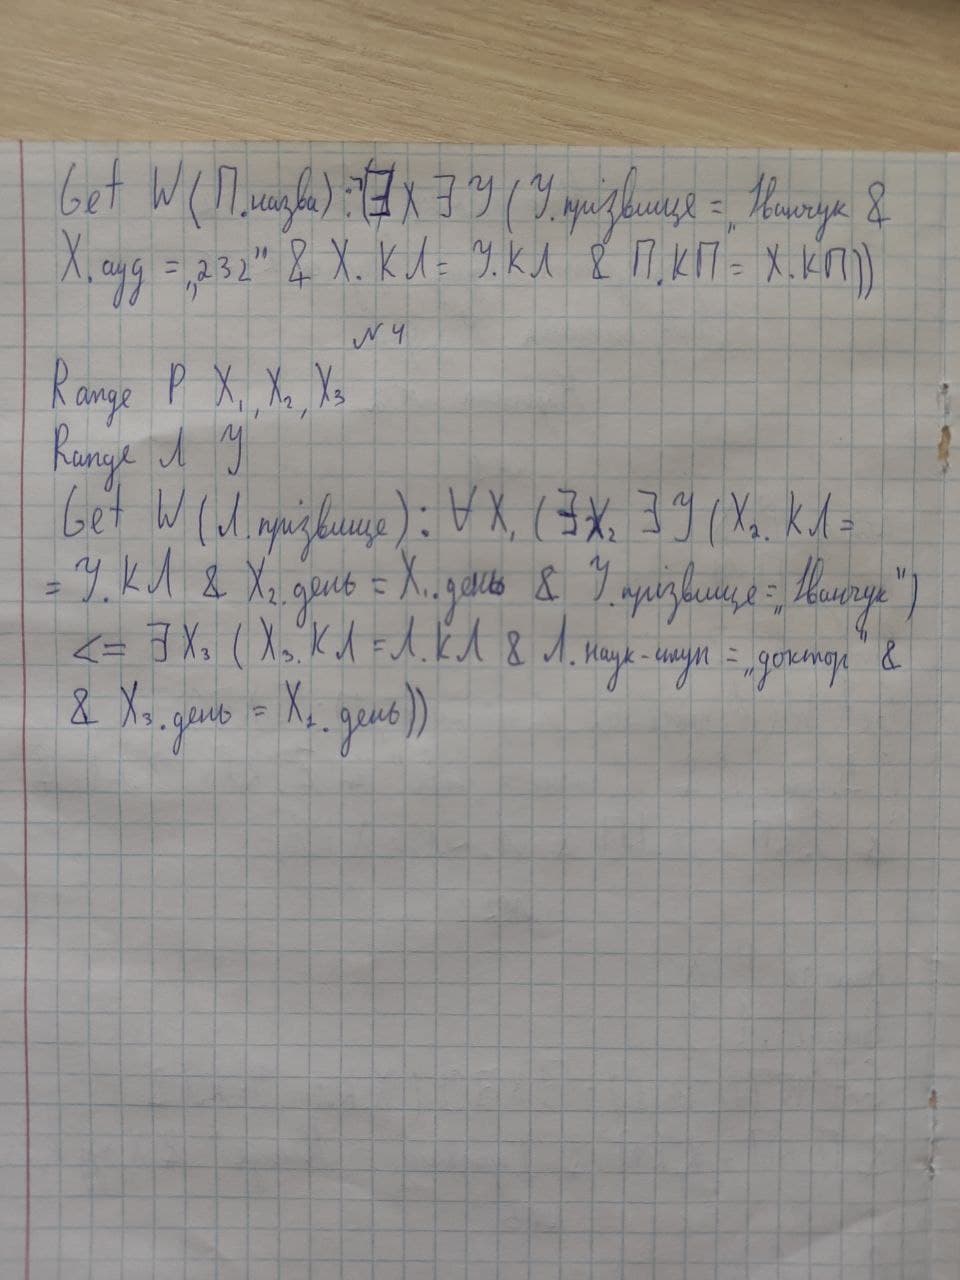 Get W (П.назва) : ⌉(∃ X ∃ У ( У.прізвище = „Іванчук &
X.ауд = „232" & X.КЛ = У.КЛ & П.КП = X.КП))
№ 4
Range P X₁, X₂, X₃
Range Л У
Get W (Л.прізвище) : ∀ X₁ ( ∃ X₂ ∃ У ( X₂.КЛ =
= У.КЛ & X₂.день = X₁.день & У.прізвище = „Іванчук")
<= ∃ X₃ ( X₃.КЛ = Л.КЛ & Л.наук-ступ = „доктор" &
& X₃.день = X₁.день))